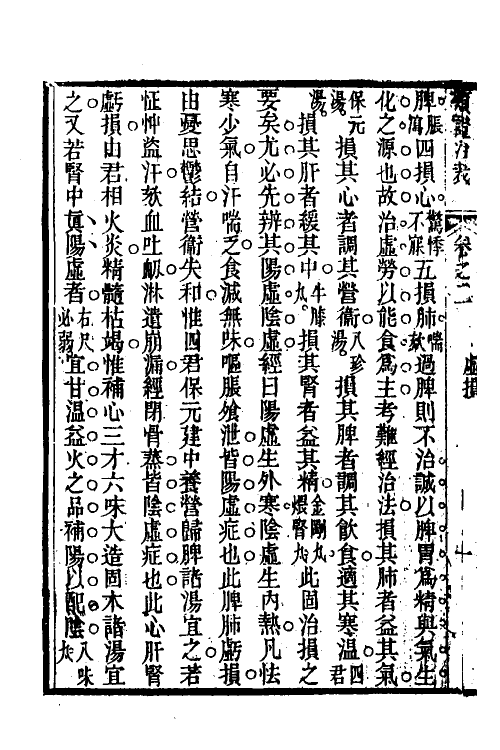 類證治裁 卷之二 虛損 十
脾脹瀉四損心驚悸不寐五損肺喘欬過脾則不治誠以脾胃爲精與氣生
化之源也故治虛勞以能食爲主考難經治法損其肺者益其氣
保元湯損其心者調其營衛八珍湯損其脾者調其飲食適其寒溫四君
湯損其肝者緩其中牛膝丸損其腎者益其精金剛丸煨腎丸此固治損之
要矣尤必先辨其陽虛陰虛經曰陽虛生外寒陰虛生內熱凡怯
寒少氣自汗喘乏食減無味嘔脹飧泄皆陽虛症也此脾肺虧損
由憂思鬱結營衛失和惟四君保元建中養營歸脾諸湯宜之若
怔忡盜汗欬血吐衄淋遺崩漏經閉骨蒸皆陰虛症也此心肝腎
虧損由君相火炎精髓枯竭惟補心三才六味大造固本諸湯宜
之又若腎中眞陽虛者右尺必弱宜甘溫益火之品補陽以配陰八味丸